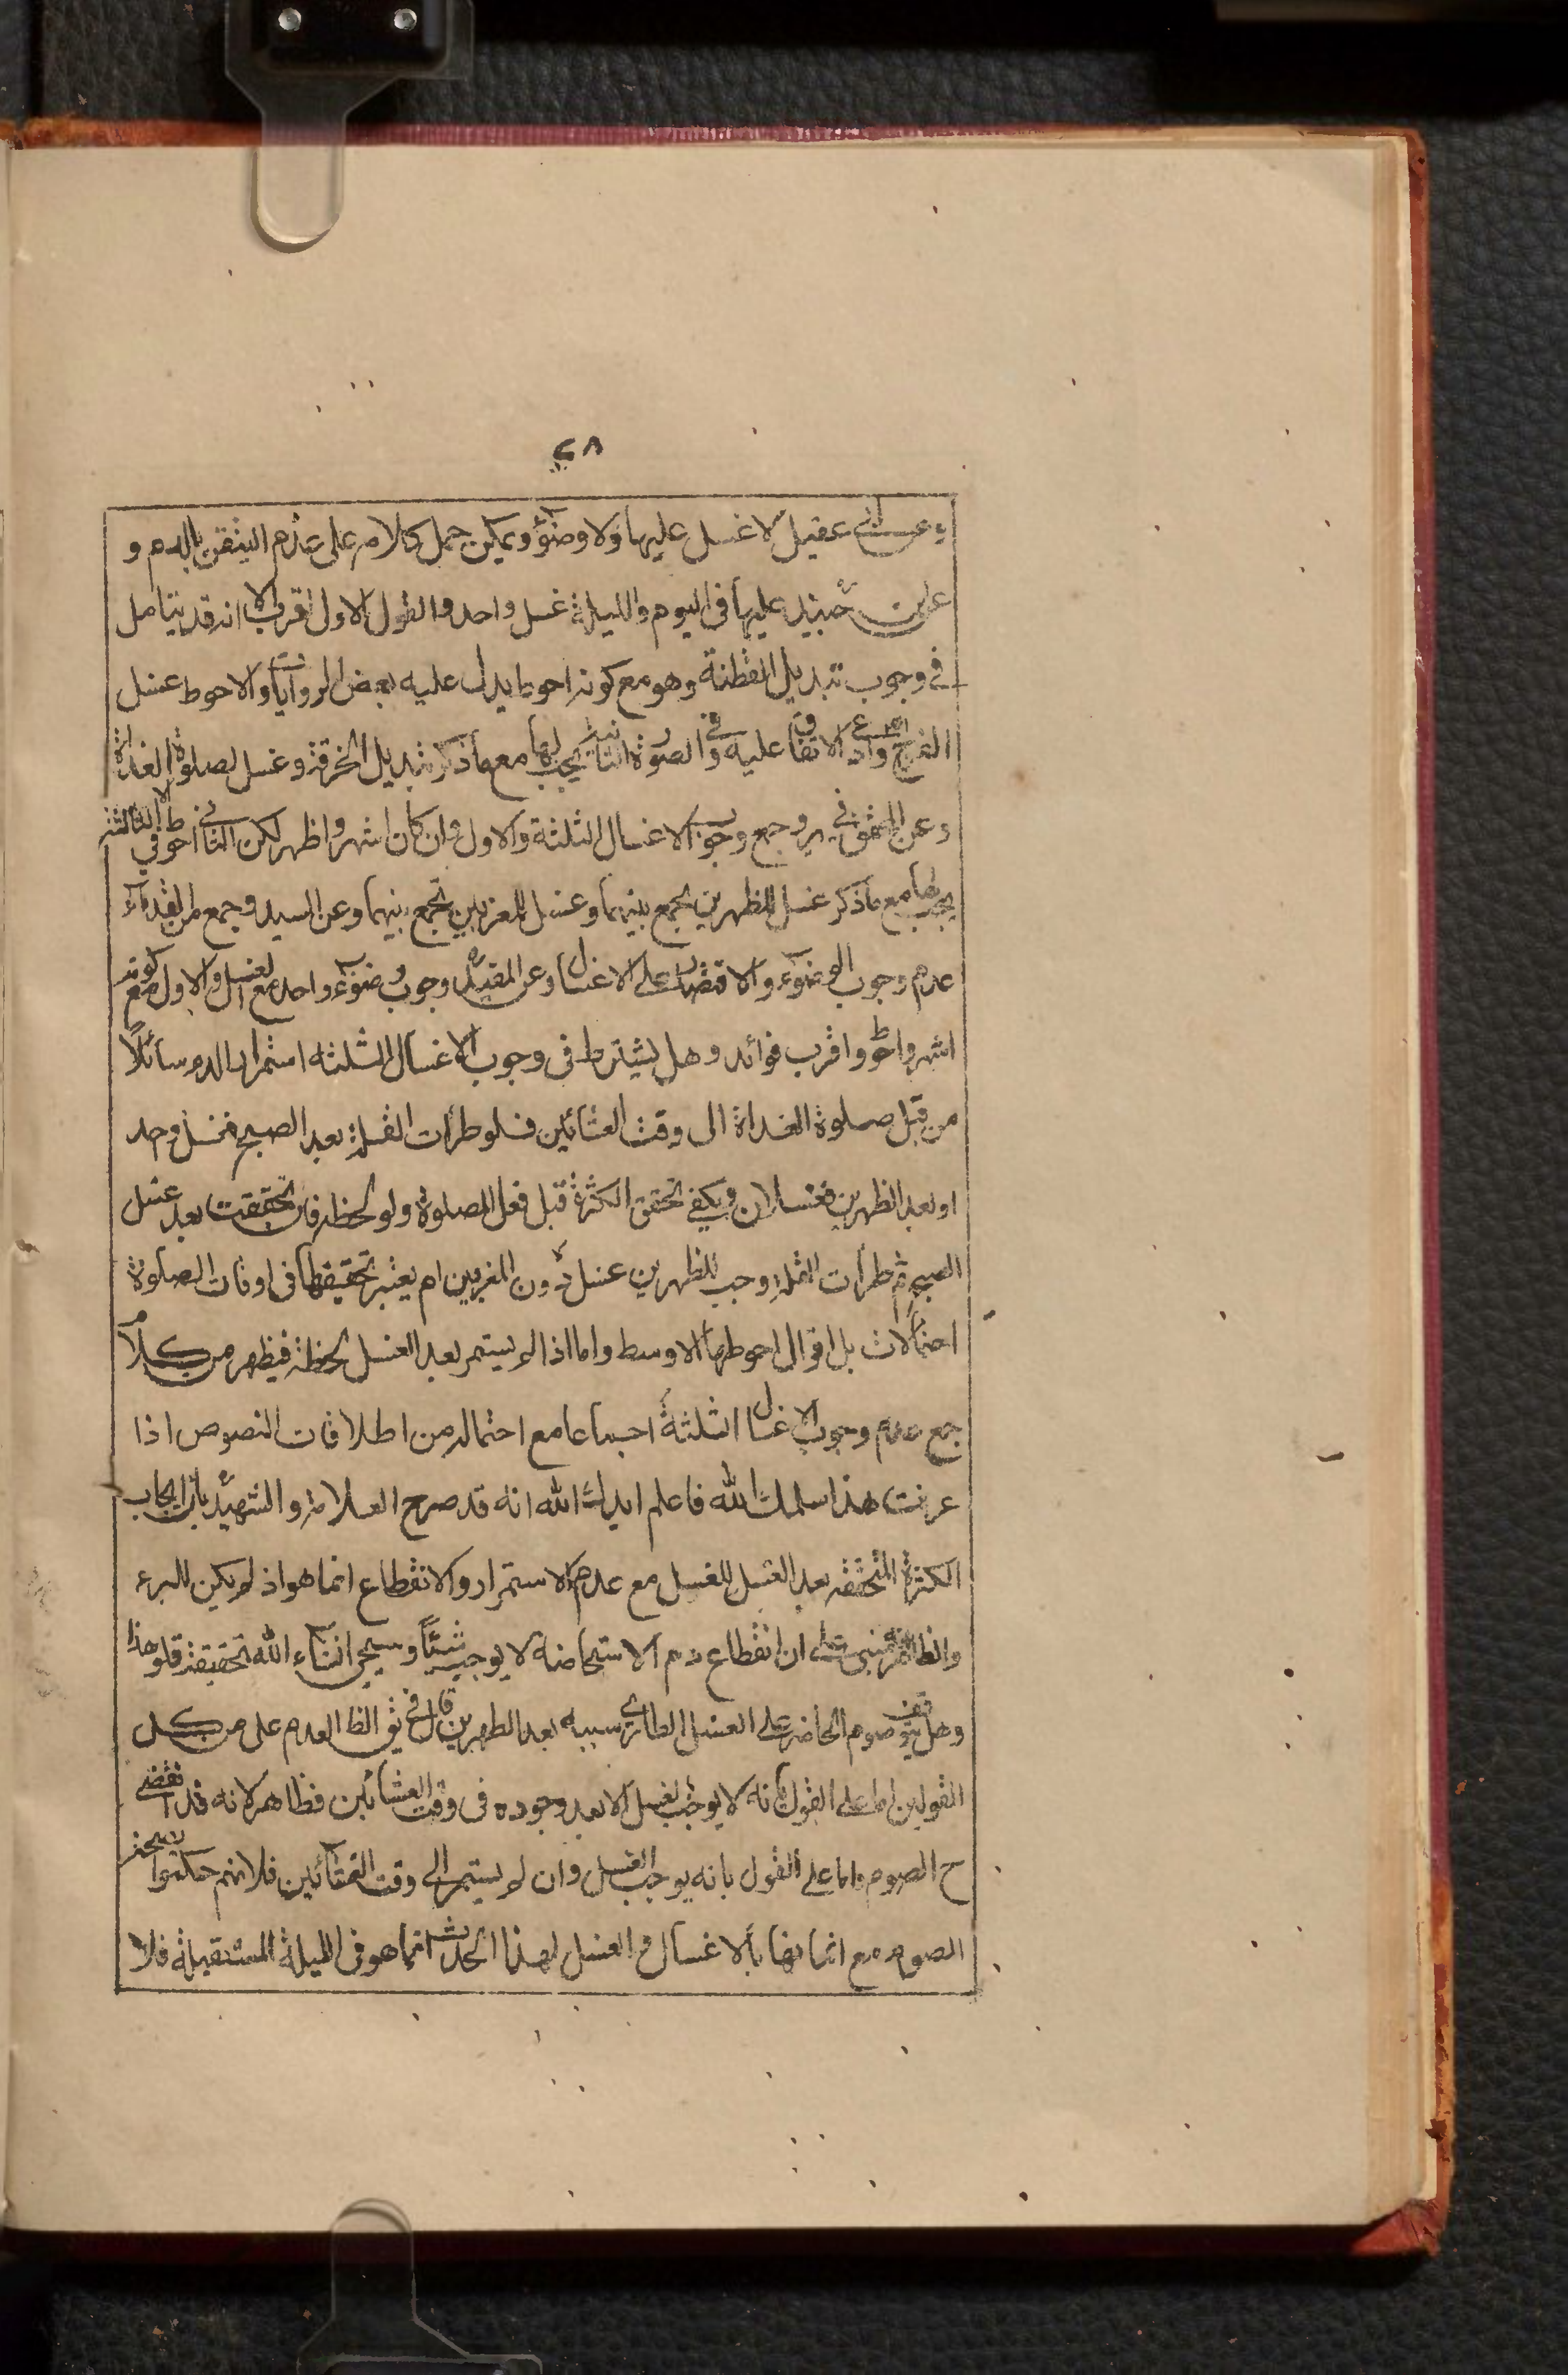 ٢٨
وعن ابن عقيل لا غسل عليها ولا وضوء ويمكن حمل كلامه على عدم التيقن بالدم و
عن حينئذ عليها فى اليوم والليلة غسل واحد والقول الاول اقرب الا انه قد يتامل
فى وجوب تبديل القطنة وهو مع كونه احوط يدل عليه بعض الروايات والاحوط غسل
الفرج وادعى الاتفاق عليه وفى الصورة الثانية يجب لها مع ما ذكر تبديل الخرقة وغسل لصلوة الغداة
وعن المحقق فى وجمع وجوب الاغسال الثلثة والاول وان كان اشهر واظهر لكن الثانى احوط وفى الثالثة
يجب لها مع ما ذكر غسل للظهرين تجمع بينهما وغسل للمغربين تجمع بينهما وعن السيد وجمع من القدماء
عدم وجوب الوضوء والاقتصار على الاغسال وعن المفيد وجوب وضوء واحد مع الغسل والاول مع كونه
اشهر واحوط واقرب فوائد وهل يشترط فى وجوب الاغسال الثلثه استمرار الدم سائلا
من قبل صلوة الغداة الى وقت العشائين فلو طرأت القلة بعد الصبح فغسل واحد
او بعد الظهرين فغسلان ويكفى تحقق الكثرة قبل فعل الصلوة ولو لحظه فان تحققت بعد غسل
الصبح ثم طرأت القلة وجب للظهرين غسل دون المغربين ام يعتبر تحقيقها فى اوقات الصلوة
احتمالات بل اقوال احوطها الاوسط واما اذا لم يستمر بعد الغسل لحظة فيظهر من كلام
جمع عدم وجوب الاغسال الثلثة اجماعا مع احتماله من اطلاقات النصوص اذا
عرفت هذا سلمك الله فاعلم ايدك الله انه قد صرح العلامه والشهيد بان ايجاب
الكثرة المتحققه بعد الغسل للغسل مع عدم الاستمرار والانقطاع انما هو اذ لم يكن للبرء
والظاهر انه مبنى على ان انقطاع دم الاستحاضة لا يوجب شيئا وسيجى انشاء الله تحقيقه قلو هذا
وهل يتوقف صوم الحاضر على الغسل الطارى سببه بعد الظهرين قال فى الظ العدم على من كل
القولين اما على القول بانه لا يوجب الغسل الا بعد وجوده فى وقت العشائين فظاهر لانه قد انقضى
ح الصوم واما على القول بانه يوجب الغسل وان لم يستمر الى وقت العشائين فلانهم حكموا بصحة
الصوم مع اتيانها بالاغسال و الغسل لهذا الحدث انما هو فى الليلة المستقبلة فلا